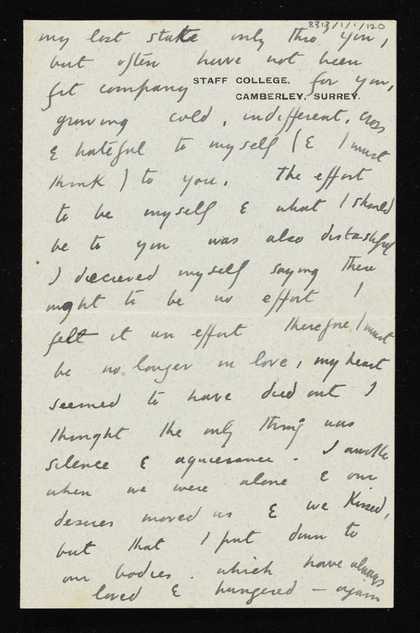 8313/1/1/120
my lost state only thro you,
but often have not been
fit company STAFF COLLEGE, for you,
CAMBERLEY, SURREY.
growing cold, indifferent, cross
& hateful to myself (& I must
think) to you. The effort
to be myself & what I should
be to you was also distasteful
I deceived myself saying there
ought to be no effort I
felt it an effort therefore I must
be no longer in love, my heart
seemed to have died out I
thought the only thing was
silence & aquiesance. I awoke
when we were alone & our
desires moved us & we kissed,
but that I put down to
our bodies. which have always
loved & hungered – again